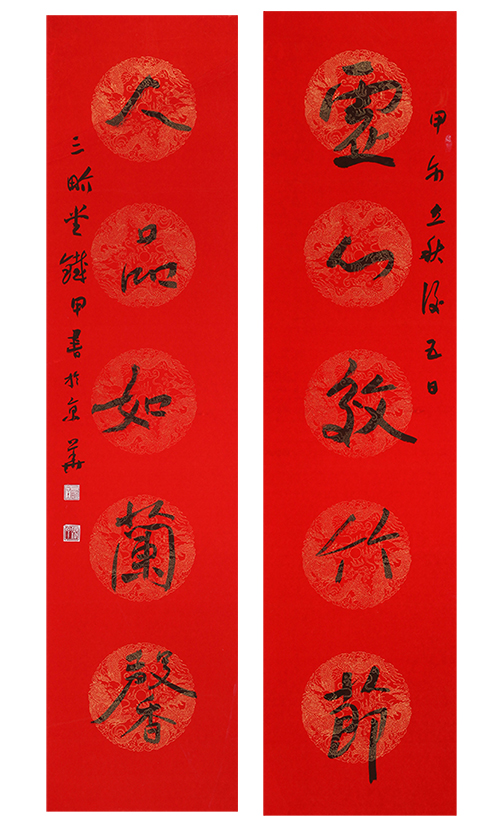 甲午立秋後五日
虛心效竹節
人品如蘭馨
三畝堂鐵甲書於京華